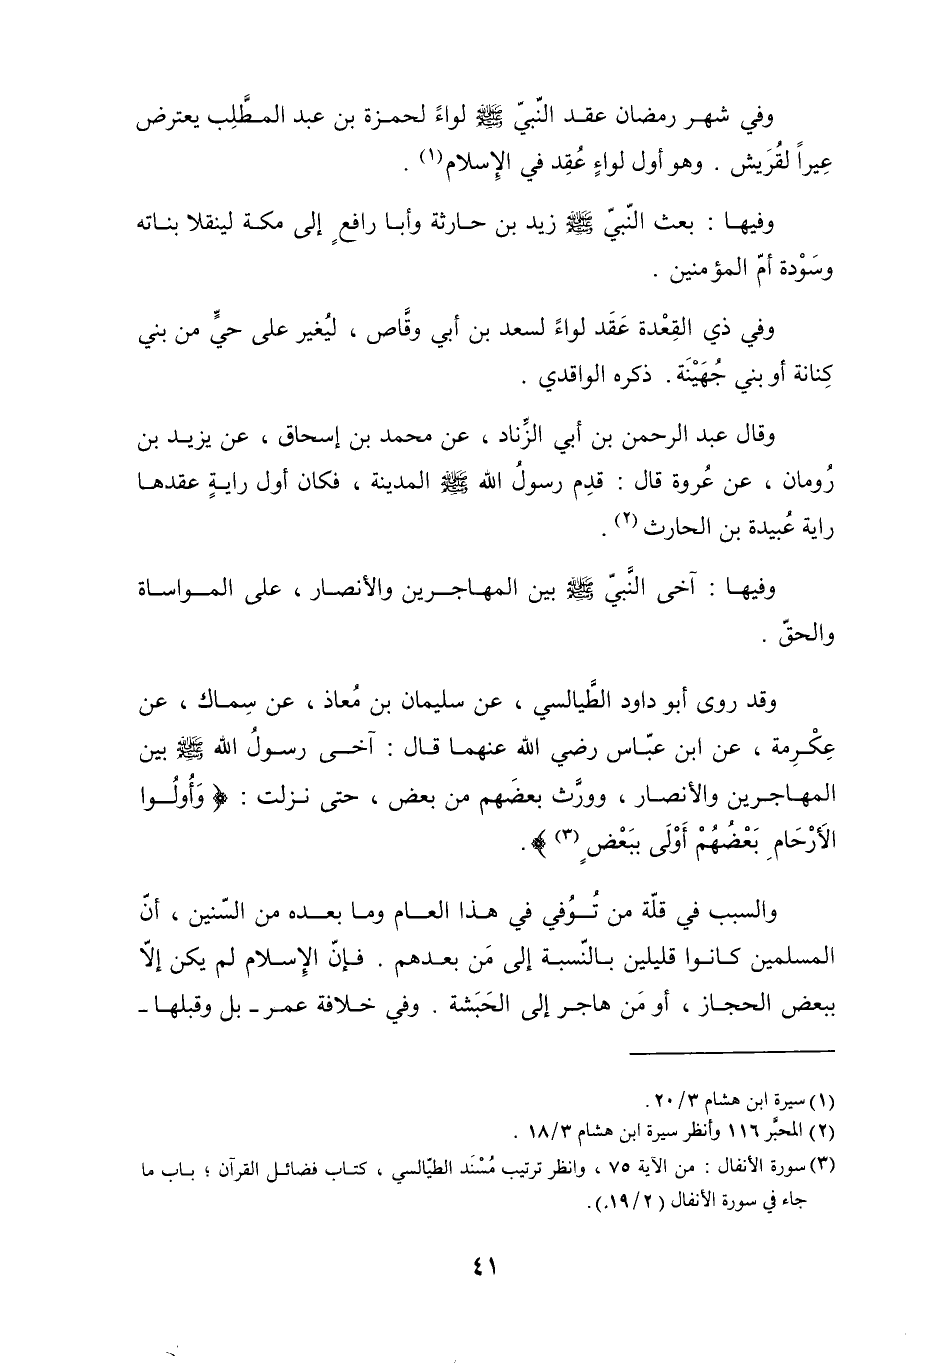 وفي شهر رمضان عقد النّبيّ ﷺ لواءً لحمزة بن عبد المطَّلِب يعترض
عِيراً لقُرَيش . وهو أول لواءٍ عُقِد في الإِسلام(١) .
وفيها : بعث النّبيّ ﷺ زيد بن حارثة وأبا رافعٍ إلى مكة لينقلا بناته
وسَوْدة أمّ المؤمنين .
وفي ذي القِعْدة عَقَد لواءً لسعد بن أبي وقَّاص ، ليُغير على حيٍّ من بني
كِنانة أو بني جُهَيْنَة . ذكره الواقدي .
وقال عبد الرحمن بن أبي الزِّناد ، عن محمد بن إسحاق ، عن يزيد بن
رُومان ، عن عُروة قال : قدِم رسولُ الله ﷺ المدينة ، فكان أول رايةٍ عقدها
راية عُبيدة بن الحارث(٢) .
وفيها : آخى النَّبيّ ﷺ بين المهاجرين والأنصار ، على المواساة
والحقّ .
وقد روى أبو داود الطَّيالسي ، عن سليمان بن مُعاذ ، عن سِماك ، عن
عِكْرِمة ، عن ابن عبّاس رضي الله عنهما قال : آخى رسولُ الله ﷺ بين
المهاجرين والأنصار ، وورَّث بعضَهم من بعض ، حتى نزلت : ﴿ وَأُولُوا
الْأَرْحَامِ بَعْضُهُمْ أَوْلَى بِبَعْضٍ(٣) ﴾ .
والسبب في قلّة من تُوُفي في هذا العام وما بعده من السّنين ، أنّ
المسلمين كانوا قليلين بالنّسبة إلى مَن بعدهم . فإنّ الإِسلام لم يكن إلاّ
ببعض الحجاز ، أو مَن هاجر إلى الحَبَشة . وفي خلافة عمر - بل وقبلها -
(١) سيرة ابن هشام ٢٠/٣ .
(٢) المحبَّر ١١٦ وأنظر سيرة ابن هشام ١٨/٣ .
(٣) سورة الأنفال : من الآية ٧٥ ، وانظر ترتيب مُسْنَد الطيّالسي ، كتاب فضائل القرآن ؛ باب ما
جاء في سورة الأنفال ( ١٩/٢ ) .
٤١